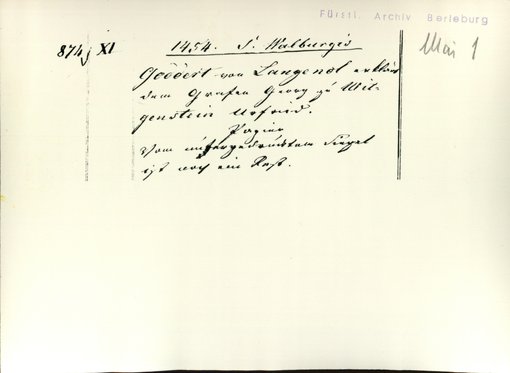 Fürstl. Archiv Berleburg
874j XI
1454. S. Walburgis
Mai 1
Goddert von Langenol erklärt
dem Grafen Georg zu Wit-
genstein Urfried.
Papier
Vom aufgedrücktem Siegel
ist noch ein Rest.